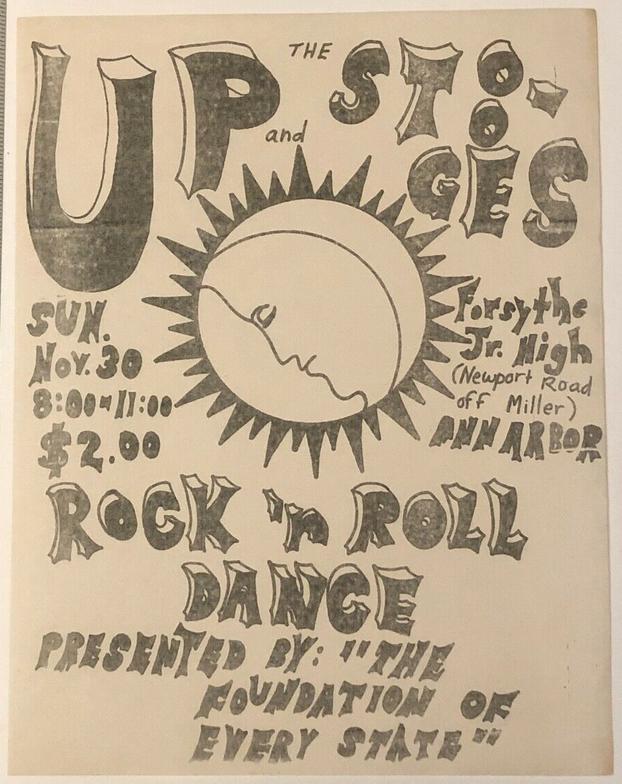 UP and
THE STOO-
GES
SUN.
Nov. 30
8:00-11:00
$2.00
Forsythe
Jr. High
(Newport Road
off Miller)
ANN ARBOR
ROCK 'n ROLL
DANCE
PRESENTED BY: "THE
FOUNDATION OF
EVERY STATE"